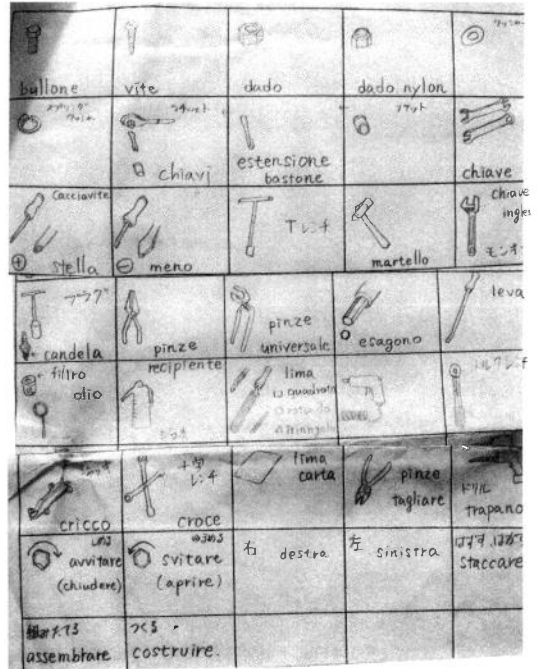 bullone
vite
dado
dado nylon
ワッシャー
スプリング
ワッシャ
ラチェット
chiavi
estensione
bastone
ソケット
chiave
Cacciavite
⊕ stella
⊖ meno
Tレンチ
martello
chiave
ingles
プラグ
candela
pinze
pinze
universale
esagono
leva
filtro
olio
recipiente
lima
□ quadrata
△ triangolo
トルクレンチ
cricco
十型
レンチ
croce
lima
carta
pinze
tagliare
ドリル
trapano
しめる
avvitare
(chiudere)
ゆるめる
svitare
(aprire)
右 destra
左 sinistra
staccare
組みたてる
assembrare
つくる
costruire.